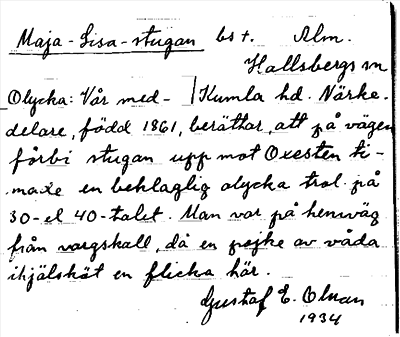 Maja-Lisa-stugan bst. Alm.
Hallsbergs sn
Olycka: Vår med- | Kumla hd. Närke.
delare, född 1861, berättar, att på vägen
förbi stugan upp mot Oxesten ti-
made en beklaglig olycka trol. på
30- el 40-talet. Man var på hemväg
från vargskall, då en pojke av våda
ihjälsköt en flicka här.
Gustaf E. Olman
1934